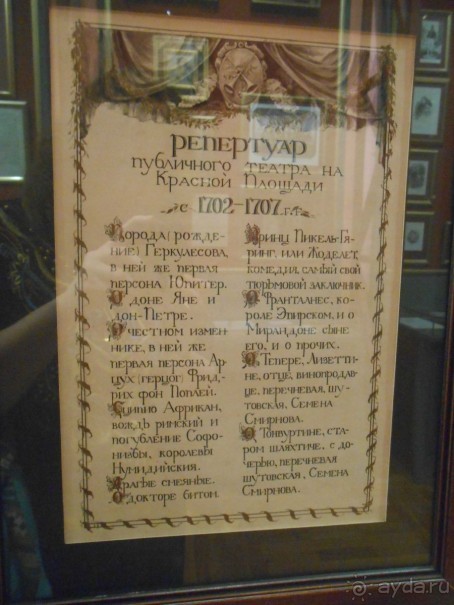 Репертуар
публичного театра на
Красной Площади
с 1702–1707 г.г.
Порода (рожде-
ние) Геркулесова,
в ней же первая
персона Юпитер.
О доне Яне и
дон-Петре.
О честном измен-
нике, в ней же
первая персона Ар-
цух (герцог) Фрид-
рих фон Поплей.
Сципио Африкан,
вождь римский и
погубление Софо-
низбы, королевы
Нумидийския.
Драгые смеяные.
О докторе битом.
Принц Пикель-Гя-
ринг, или Жоделет,
комедия, самый свой
тюрьмовой заключник.
О Франталпее, ко-
роле Эпирском, и о
Мирандоне сыне
его, и о прочих.
О Тенере, Лизетти-
не, отце, винопродав-
це, перечневая, шу-
товская, Семена
Смирнова.
О Тонвуртине, ста-
ром шляхтиче, с до-
черью, перечневая
шутовская, Семена
Смирнова.
ayda.ru